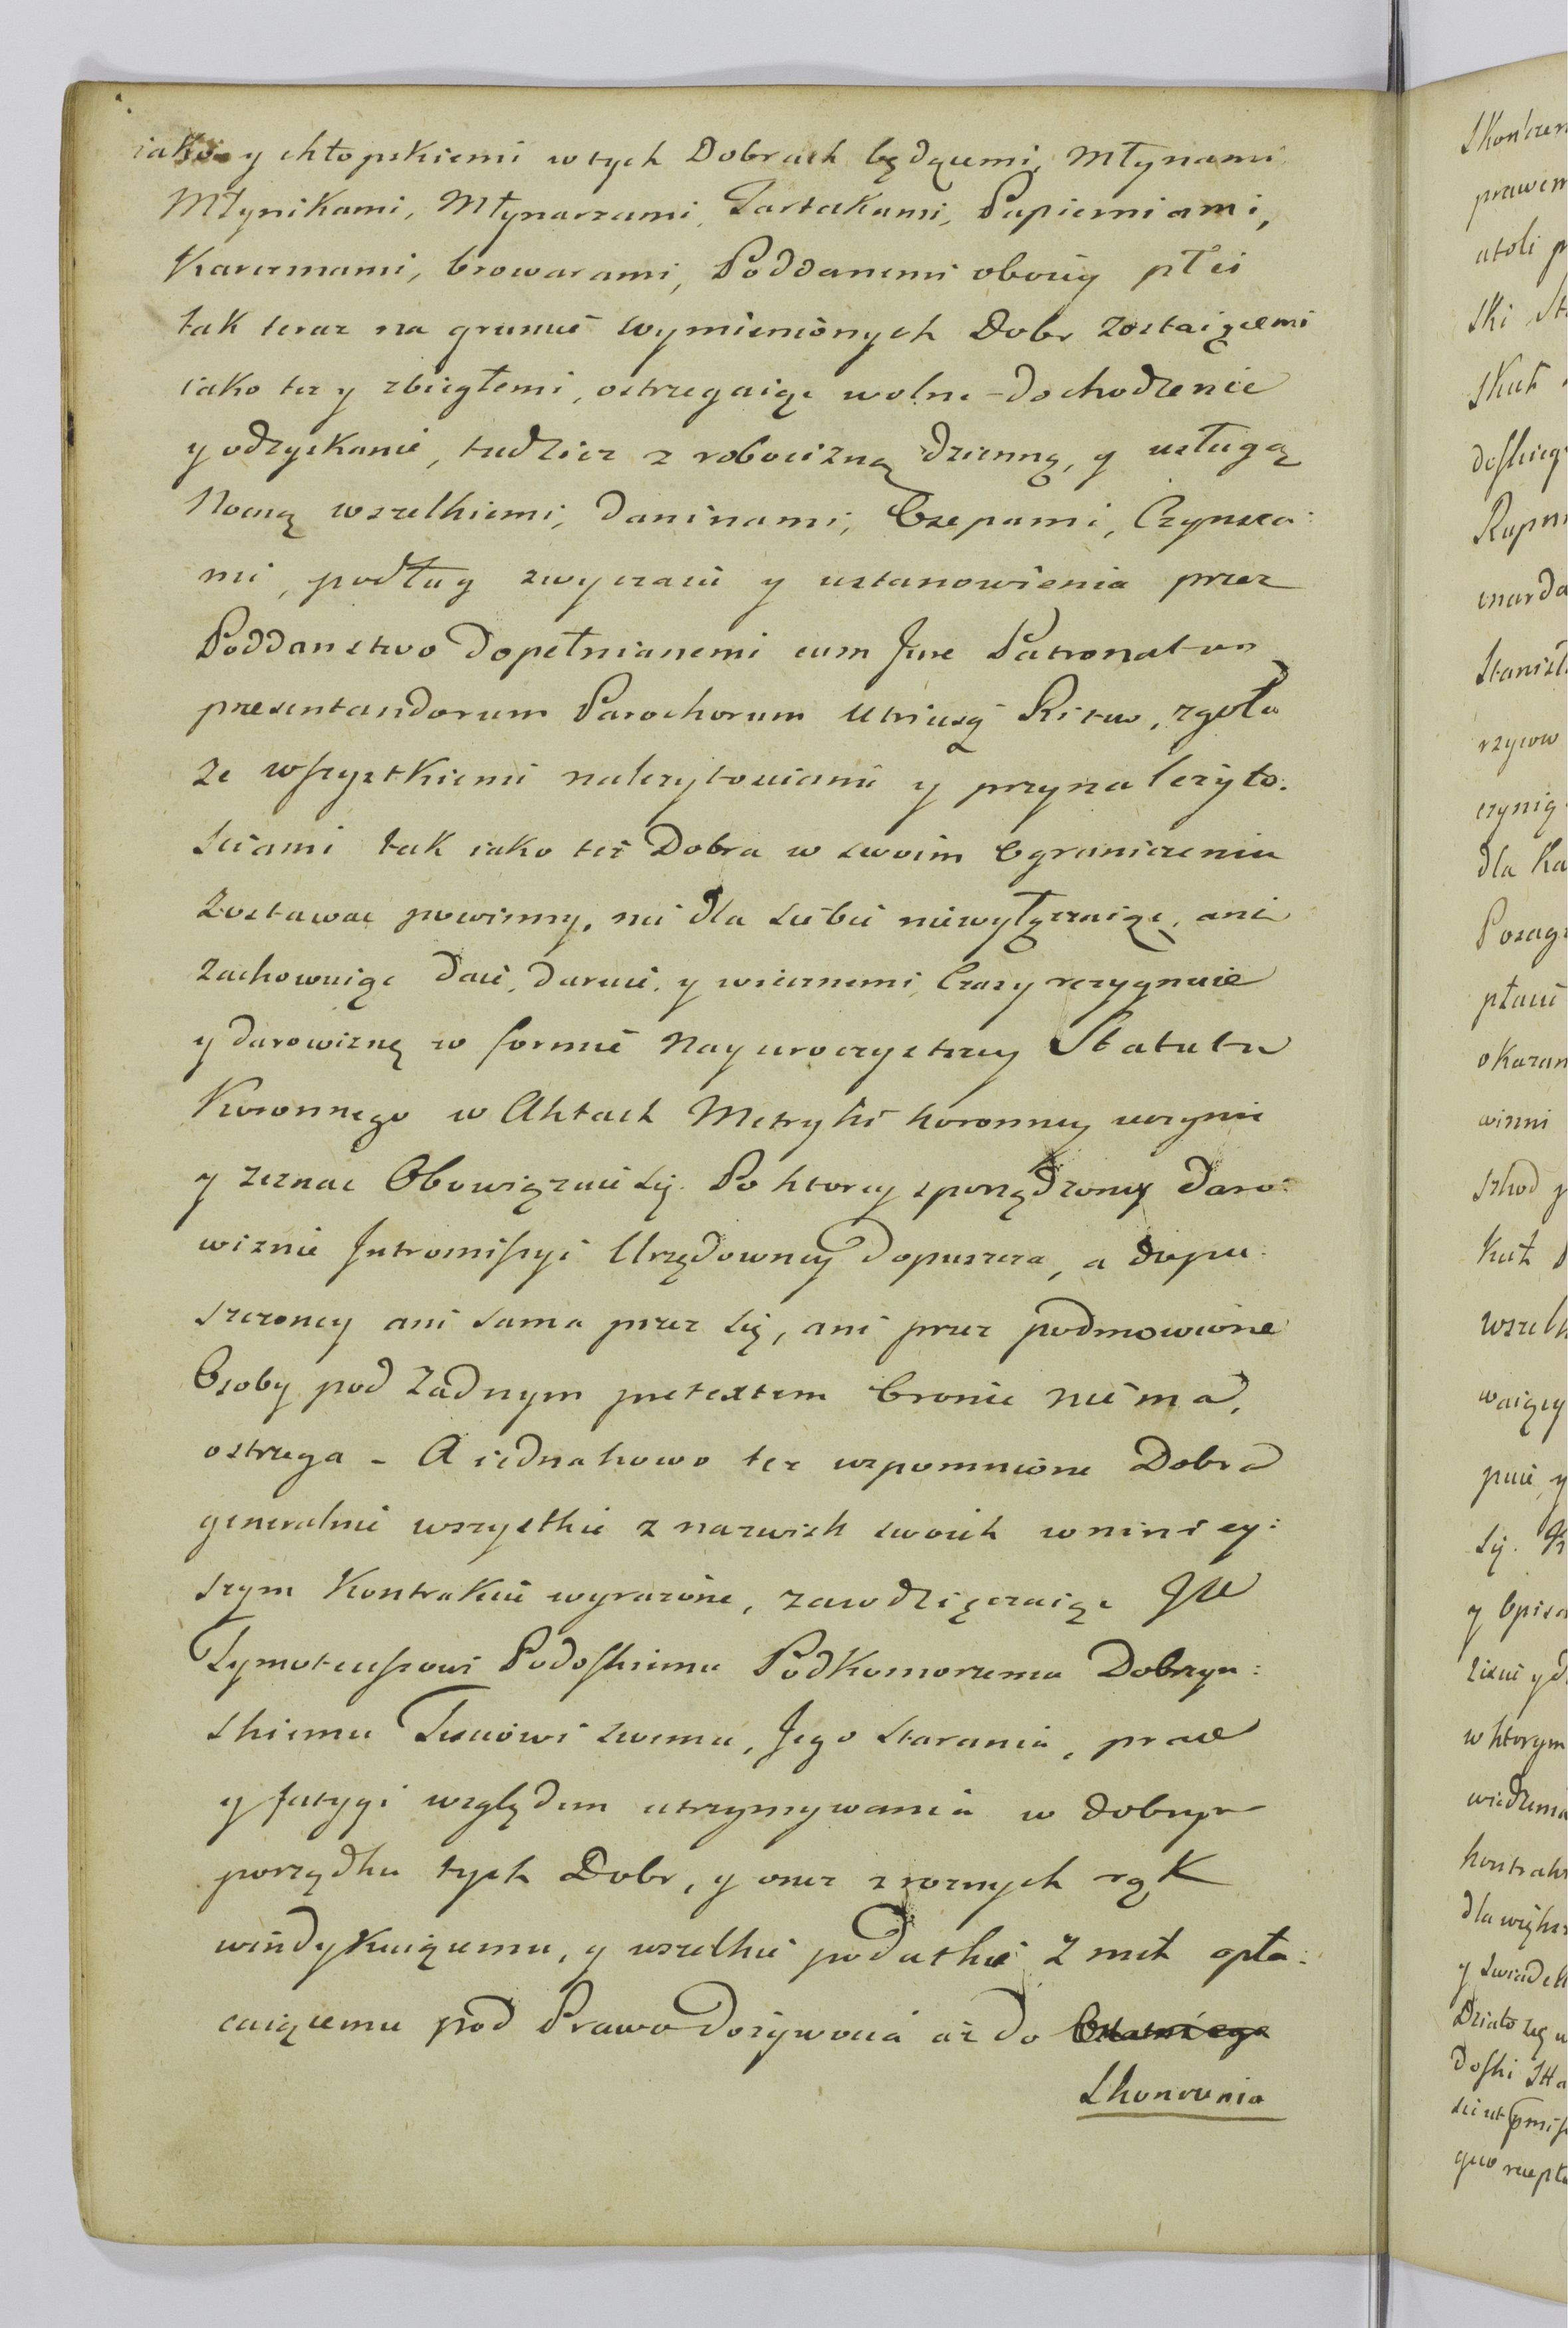 iako y chłopskiemi w tych Dobrach będącemi, Młynami
Młynikami, Młynarzami, Tartakami, Papierniami,
Karczmami, browarami, Poddanemi oboiey płci
tak teraz na gruncie wymienionych Dobr zostaiącemi
iako tez y zbiegłemi, ostrzegaiąc wolne dochodzenie
y odzyskanie, tudziez z robocizną dzienną, y usługą
Nocną wszelkiemi, daninami, Osepami, Czynsza:
mi, podług zwyczaiu y ustanowienia przez
Poddanstwo Dopełnianemi cum Jure Patronatus
presentandorum Parochorum Utriusq Ritus, zgoła
ze wszystkiemi nalezytosciami y przynalezyto:
sciami tak iako też Dobra w swoim Ograniczeniu
zostawac powinny, nic dla siebie niewyłączaiąc, ani
zachowuiąc daie, daruie, y wiecznemi Czasy rezygnuie
y darowiznę w formie Nayuroczystszey Statutu
Koronnego w Aktach Metryki koronney uczynic
y zeznac Obowiązuie się. Po ktorey sporządzoney daro:
wiznie Intromissyi Urzędowney dopuszcza, a dopu:
szczoney ani sama przez się, ani przez podmowione
Osoby pod zadnym pretextem bronic nie ma,
ostrzega - A iednakowo tez wspomnione Dobra
generalnie wszystkie z nazwisk swoich w niniey:
szym Kontrakcie wyrazone, zawdzięczaiąc JW
Tymoteuszowi Podoskiemu Podkomorzemu Dobrzyn:
skiemu Synowi swemu, Jego starania, prace
y fatygi względem utrzymywania w dobrym
porządku tych Dobr, y onez z roznych rąk
windykuiącemu, y wszelkie podatki z nich opła:
caiącemu pod Prawo Dożywocia aż do Ostatniego
Skonania